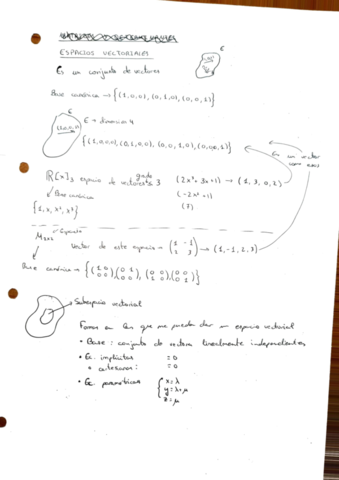 ESPACIOS VECTORIALES
E
Es un conjunto de vectores
Base canónica → {(1,0,0), (0,1,0), (0,0,1)}
E
E → dimensión 4
{(1,0,0,0), (0,1,0,0), (0,0,1,0), (0,0,0,1)}
Es un vector
ℝ[x]₃ espacio de vectores grado ≤ 3 (2x³+3x+1) → (1, 3, 0, 2)
Base canónica (-2x²+1)
{1, x, x², x³} (7)
Espacio
M₂ₓ₂
Vector de este espacio → (1 -1
2 3) → (1, -1, 2, 3)
Base canónica → {(1 0
0 0), (0 1
0 0), (0 0
1 0), (0 0
0 1)}
Subespacio vectorial
Formas en las que me pueden dar un espacio vectorial
• Base: conjunto de vectores linealmente independientes
• Ec. implícitas = 0
o cartesianas: = 0
• Ec. paramétricas { x = λ
y = λ + μ
z = μ